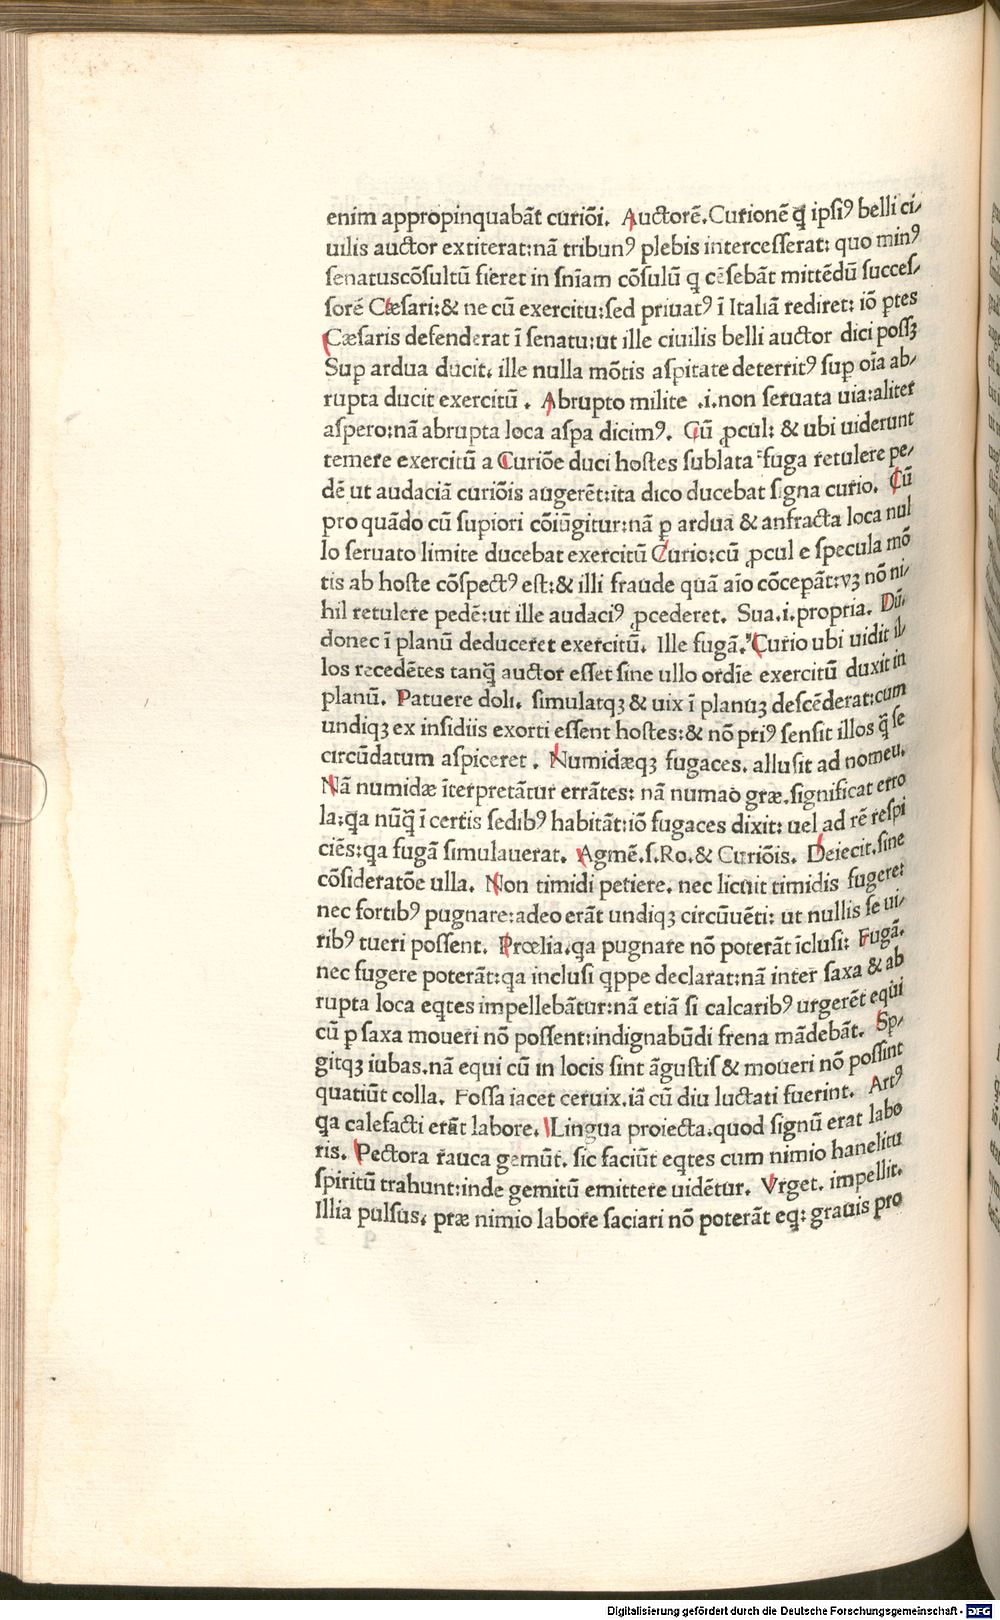 enim appropinquabãt curiõi. Auctorẽ. Curionẽ q̃ ipsiꝰ belli ci⸗
uilis auctor extiterat: nã tribunꝰ plebis intercesserat: quo minꝰ
senatuscõsultũ fieret in sñiam cõsulũ q cẽsebãt mittẽdũ succes⸗
sorẽ Cæsari: & ne cũ exercitu: sed priuatꝰ ĩ Italiã rediret: iõ ꝑtes
Cæsaris defenderat ĩ senatu: ut ille ciuilis belli auctor dici possꝫ
Suꝑ ardua ducit. ille nulla mõtis aspitate deterritꝰ suꝑ oĩa ab⸗
rupta ducit exercitũ. Abrupto milite .i. non seruata uia: aliter
aspero: nã abrupta loca aspa dicimꝰ. Cũ ꝓcul: & ubi uiderunt
temere exercitũ a Curiõe duci hostes sublata fuga retulere pe⸗
dẽ ut audaciã curiõis augerẽt: ita dico ducebat signa curio. Cũ
pro quãdo cũ supiori cõiũgitur: nã ꝑ ardua & anfracta loca nul
lo seruato limite ducebat exercitũ Curio: cũ ꝓcul e specula mõ
tis ab hoste cõspectꝰ est: & illi fraude quã aĩo cõceꝑãt: vꝫ nõ ni⸗
hil retulere pedẽ: ut ille audaciꝰ ꝓcederet. Sua .i. propria. Dũ.
donec ĩ planũ deduceret exercitũ. Ille fugã. Curio ubi uidit il⸗
los recedẽtes tanq̃ auctor esset sine ullo ordĩe exercitũ duxit in
planũ. Patuere doli. simulatqꝫ & uix ĩ planuꝫ descẽderat: cum
undiqꝫ ex insidiis exorti essent hostes: & nõ priꝰ sensit illos q̃ se
circũdatum aspiceret. Numidæqꝫ fugaces. allusit ad nomeu.
Nã numidæ ĩterpretãtur errãtes: nã numao græ. significat erro
la: qa nũq̃ ĩ certis sedibꝰ habitãt: iõ fugaces dixit: uel ad rẽ respi
ciẽs: qa fugã simulauerat. Agmẽ. s. Ro. & Curiõis. Deiecit. sine
cõsideratõe ulla. Non timidi petiere. nec licuit timidis fugere:
nec fortibꝰ pugnare: adeo erãt undiqꝫ circũuẽti: ut nullis se ui⸗
ribꝰ tueri possent. Prœlia. qa pugnare nõ poterãt ĩclusi: Fugã.
nec fugere poterãt: qa inclusi qppe declarat: nã inter saxa & ab
rupta loca eqtes impellebãtur: nã etiã si calcaribꝰ urgerẽt equi
cũ ꝑ saxa moueri nõ possent: indignabũdi frena mãdebãt. Sp⸗
gitqꝫ iubas. nã equi cũ in locis sint ãgustis & moueri nõ possint
quatiũt colla. Fossa iacet ceruix. iã cũ diu luctati fuerint. Artꝰ
qa calefacti erãt labore. Lingua proiecta. quod signũ erat labo
ris. Pectora rauca gemũt. sic faciũt eqtes cum nimio hanelitu
spiritũ trahunt: inde gemitũ emittere uidẽtur. Vrget. impellit.
Illia pulsus. præ nimio labore saciari nõ poterãt eq: grauis pro
Digitalisierung gefördert durch die Deutsche Forschungsgemeinschaft - DFG